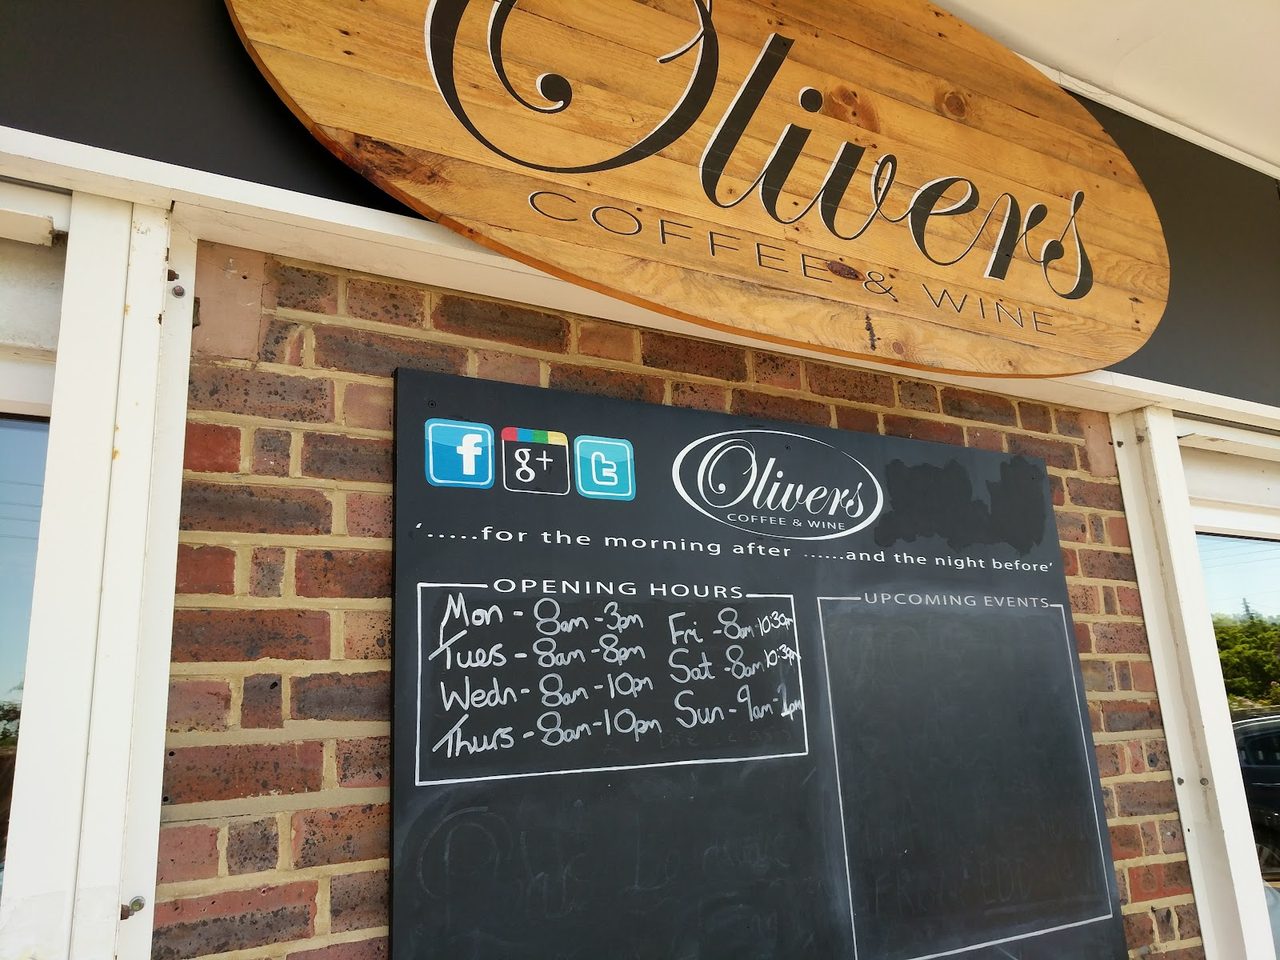 Olivers
COFFEE & WINE
f g+ t
Olivers
COFFEE & WINE
'.....for the morning after ......and the night before'
OPENING HOURS
Mon - 8am - 3pm
Tues - 8am - 8pm
Wedn - 8am - 10pm
Thurs - 8am - 10pm
Fri - 8am - 10:30pm
Sat - 8am 10:30pm
Sun - 9am -
UPCOMING EVENTS